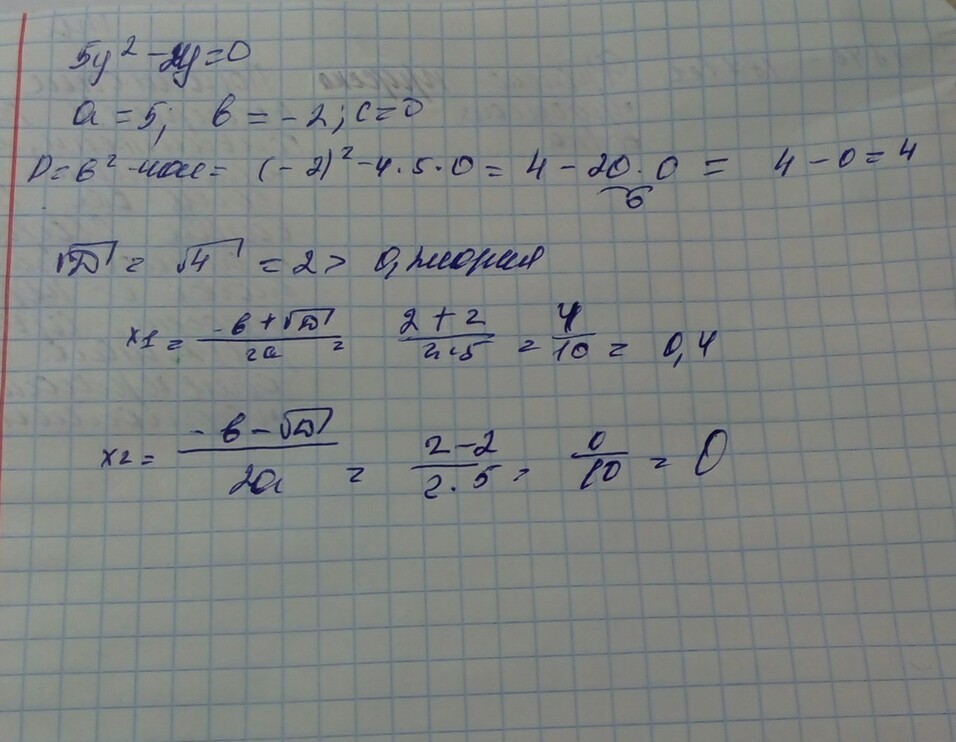 5y² - 2y = 0
a = 5; в = -2; c = 0
D = в² - 4ac = (-2)² - 4·5·0 = 4 - 20·0 = 4 - 0 = 4
0
√D = √4 = 2 > 0, 2 корня
x1 = (-в + √D)/2a = (2 + 2)/(2·5) = 4/10 = 0,4
x2 = (-в - √D)/2a = (2 - 2)/(2·5) = 0/10 = 0